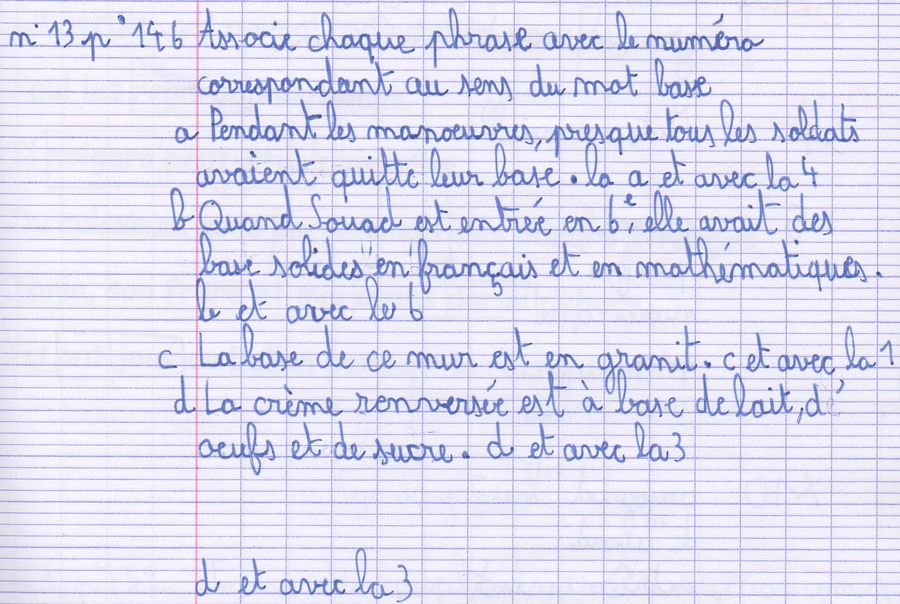 n° 13 p° 146 Associe chaque phrase avec le numéro
correspondant au sens du mot base
a Pendant les manoeuvres, presque tous les soldats
avaient quitte leur base. la a et avec la 4
b Quand Souad est entrée en 6e, elle avait des
base solides en français et en mathématiques.
b et avec le 6 5
c La base de ce mur est en granit. c et avec la 1
d La crème renversée est à base de lait, d'
oeufs et de sucre. d et avec la 3
d et avec la 3